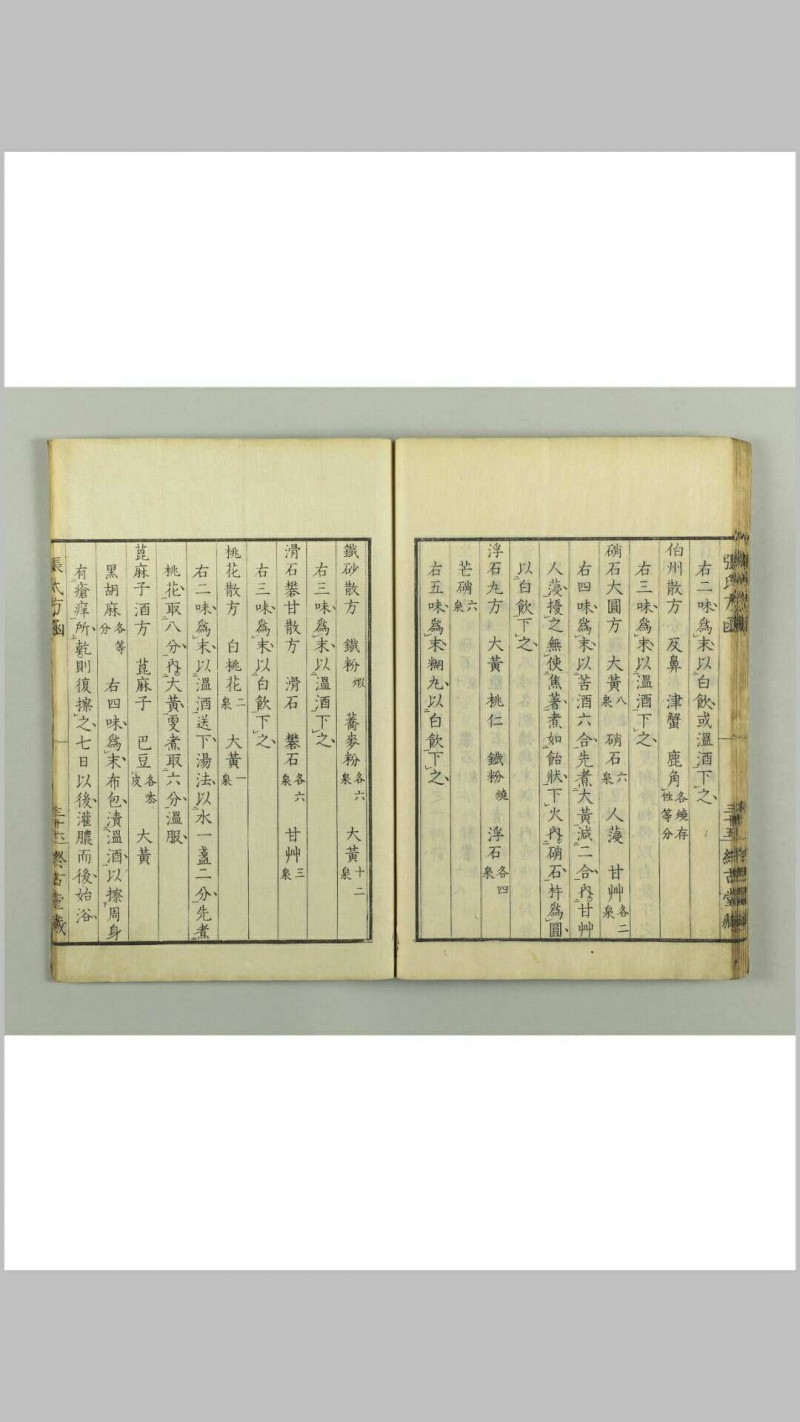 張氏方函
右二味爲末以白飲或溫酒下之
伯州散方 反鼻 津蟹 鹿角各燒存性等分
右三味爲末以溫酒下之
硝石大圓方 大黃八泉 硝石六泉 人薓 甘艸各二泉
右四味爲末以苦酒六合先煮大黃減二合內甘艸
人薓擾之無使焦著煮如飴狀下火內硝石杵爲圓
以白飲下之
浮石丸方 大黃 桃仁 鐵粉燒 浮石各四泉
芒硝六泉
右五味爲末糊丸以白飲下之
鐵砂散方 鐵粉煅 蕎麥粉各六泉 大黃十二泉
右三味爲末以溫酒下之
滑石礬甘散方 滑石 礬石各六泉 甘艸三泉
右三味爲末以白飲下之
桃花散方 白桃花二泉 大黃一泉
右二味爲末以溫酒送下湯法以水一盞二分先煮
桃花取八分內大黃更煮取六分溫服
萞麻子酒方 萞麻子 巴豆各去皮 大黃
黑胡麻各等分 右四味爲末布包漬溫酒以擦周身
有瘡痒所乾則復擦之七日以後灌膿而後始浴
張氏方函